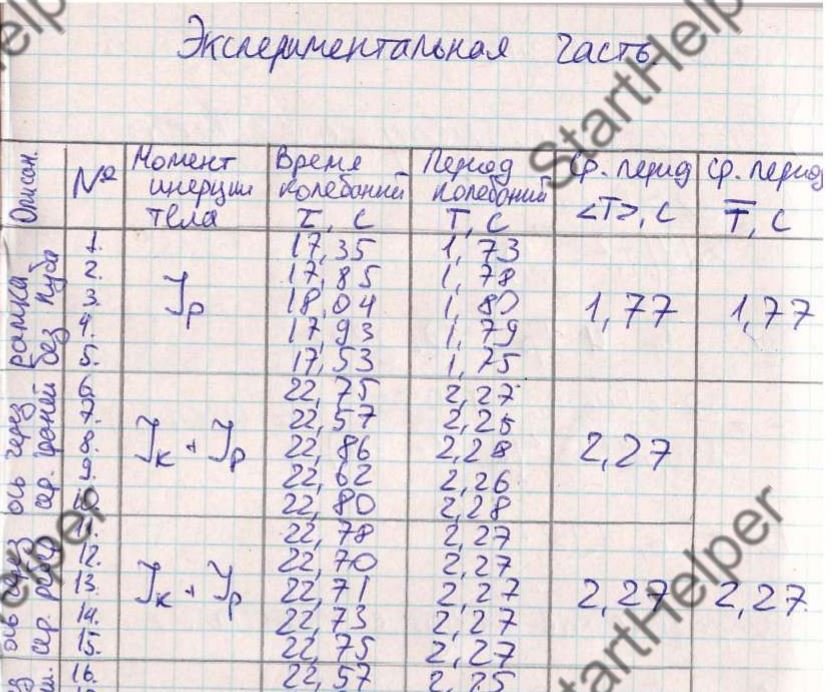 Экспериментальная часть
Описан. № Момент инерции тела Время колебаний τ, с Период колебаний T, с Ср. период <T>, с Ср. период T̅, с
рамка без куба
1. 17,35 1,73
2. 17,85 1,78
3. Jр 18,04 1,80 1,77 1,77
4. 17,93 1,79
5. 17,53 1,75
ось через сер. граней
6. 22,75 2,27
7. 22,57 2,25
8. Jк + Jр 22,86 2,28 2,27
9. 22,62 2,26
10. 22,80 2,28
ось через сер. ребер
11. 22,78 2,27
12. 22,70 2,27
13. Jк + Jр 22,71 2,27 2,27 2,27
14. 22,73 2,27
15. 22,75 2,27
16. 22,57 2,25
StartHelper
StartHelper